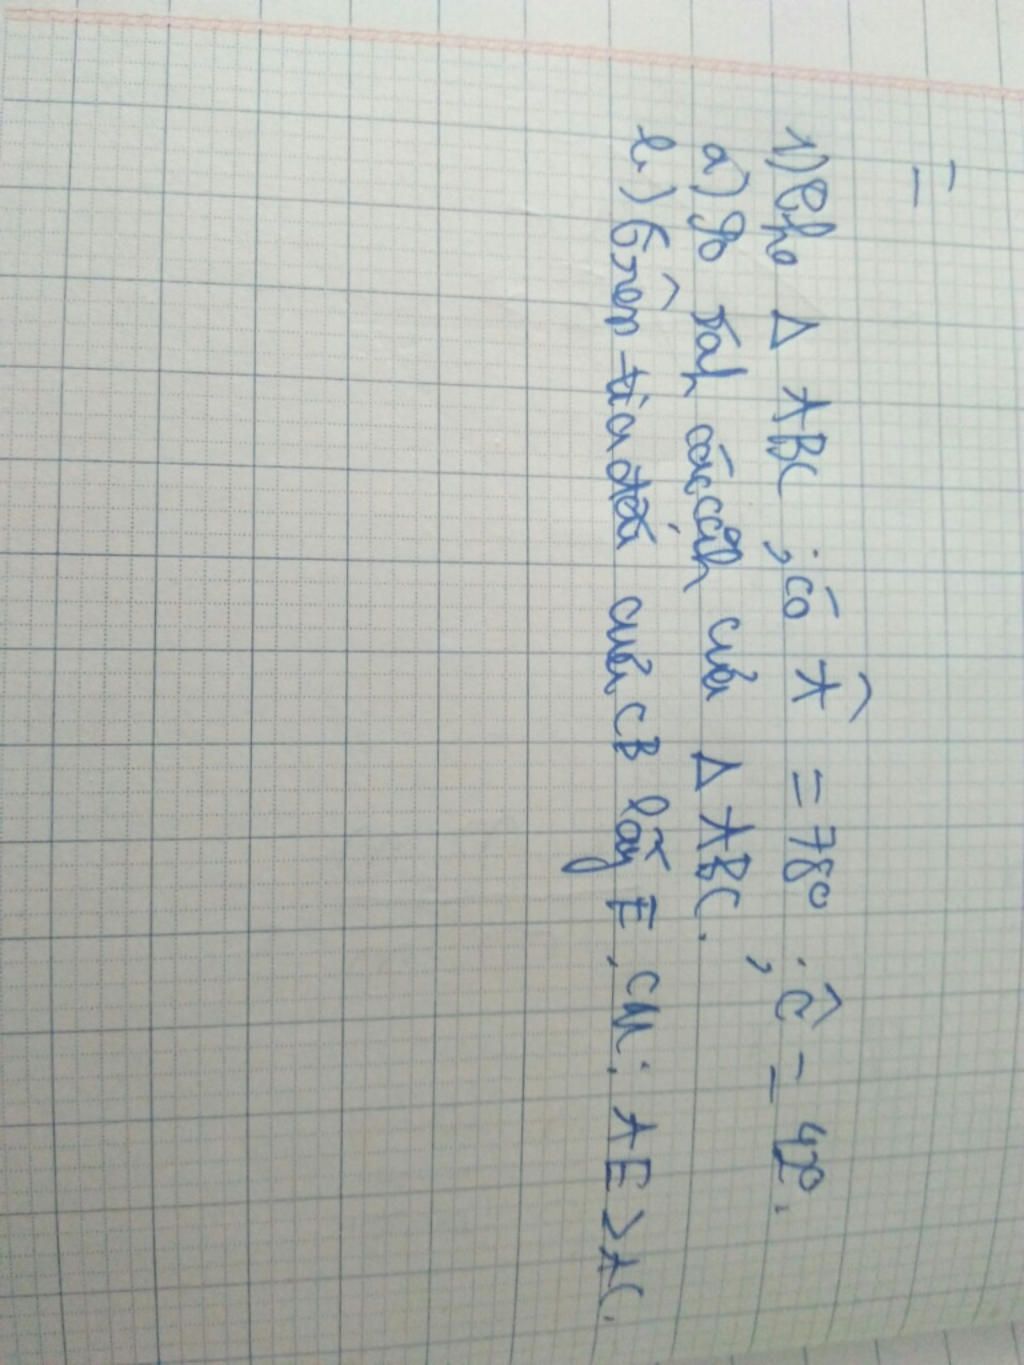 1) Cho Δ ABC ; có Â = 78° ; Ĉ = 42°.
a) So sánh các cạnh của Δ ABC.
b) Trên tia đối của CB lấy E, CM: AE > AC.